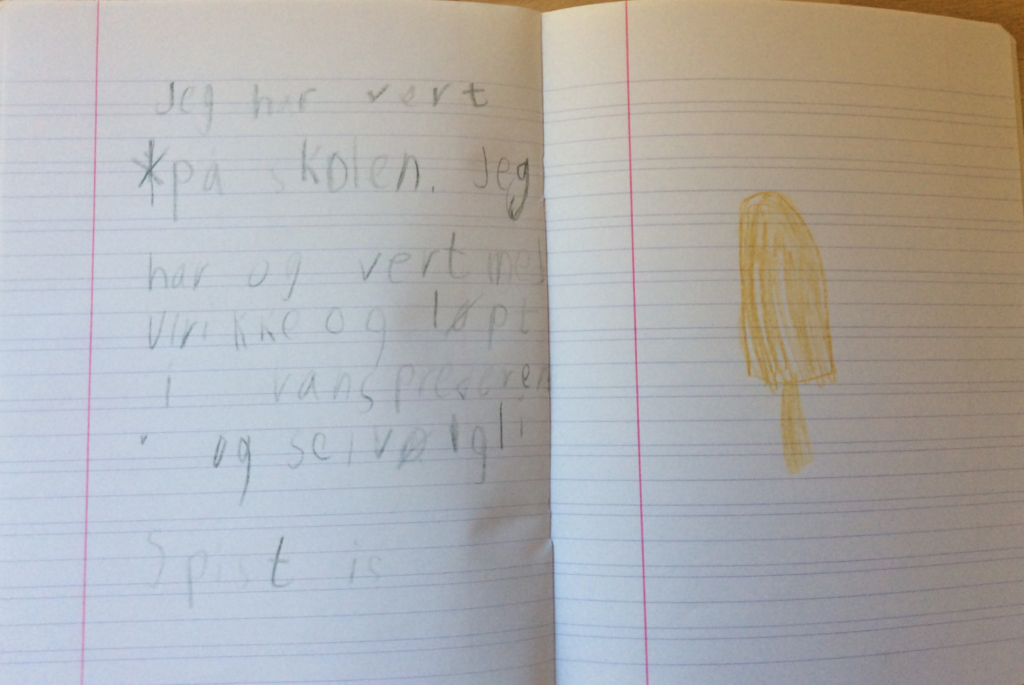 Jeg har vert
*på skolen. Jeg
har og vert med
virikke og løpt
i vansprederen
og selvølgli
Spist is